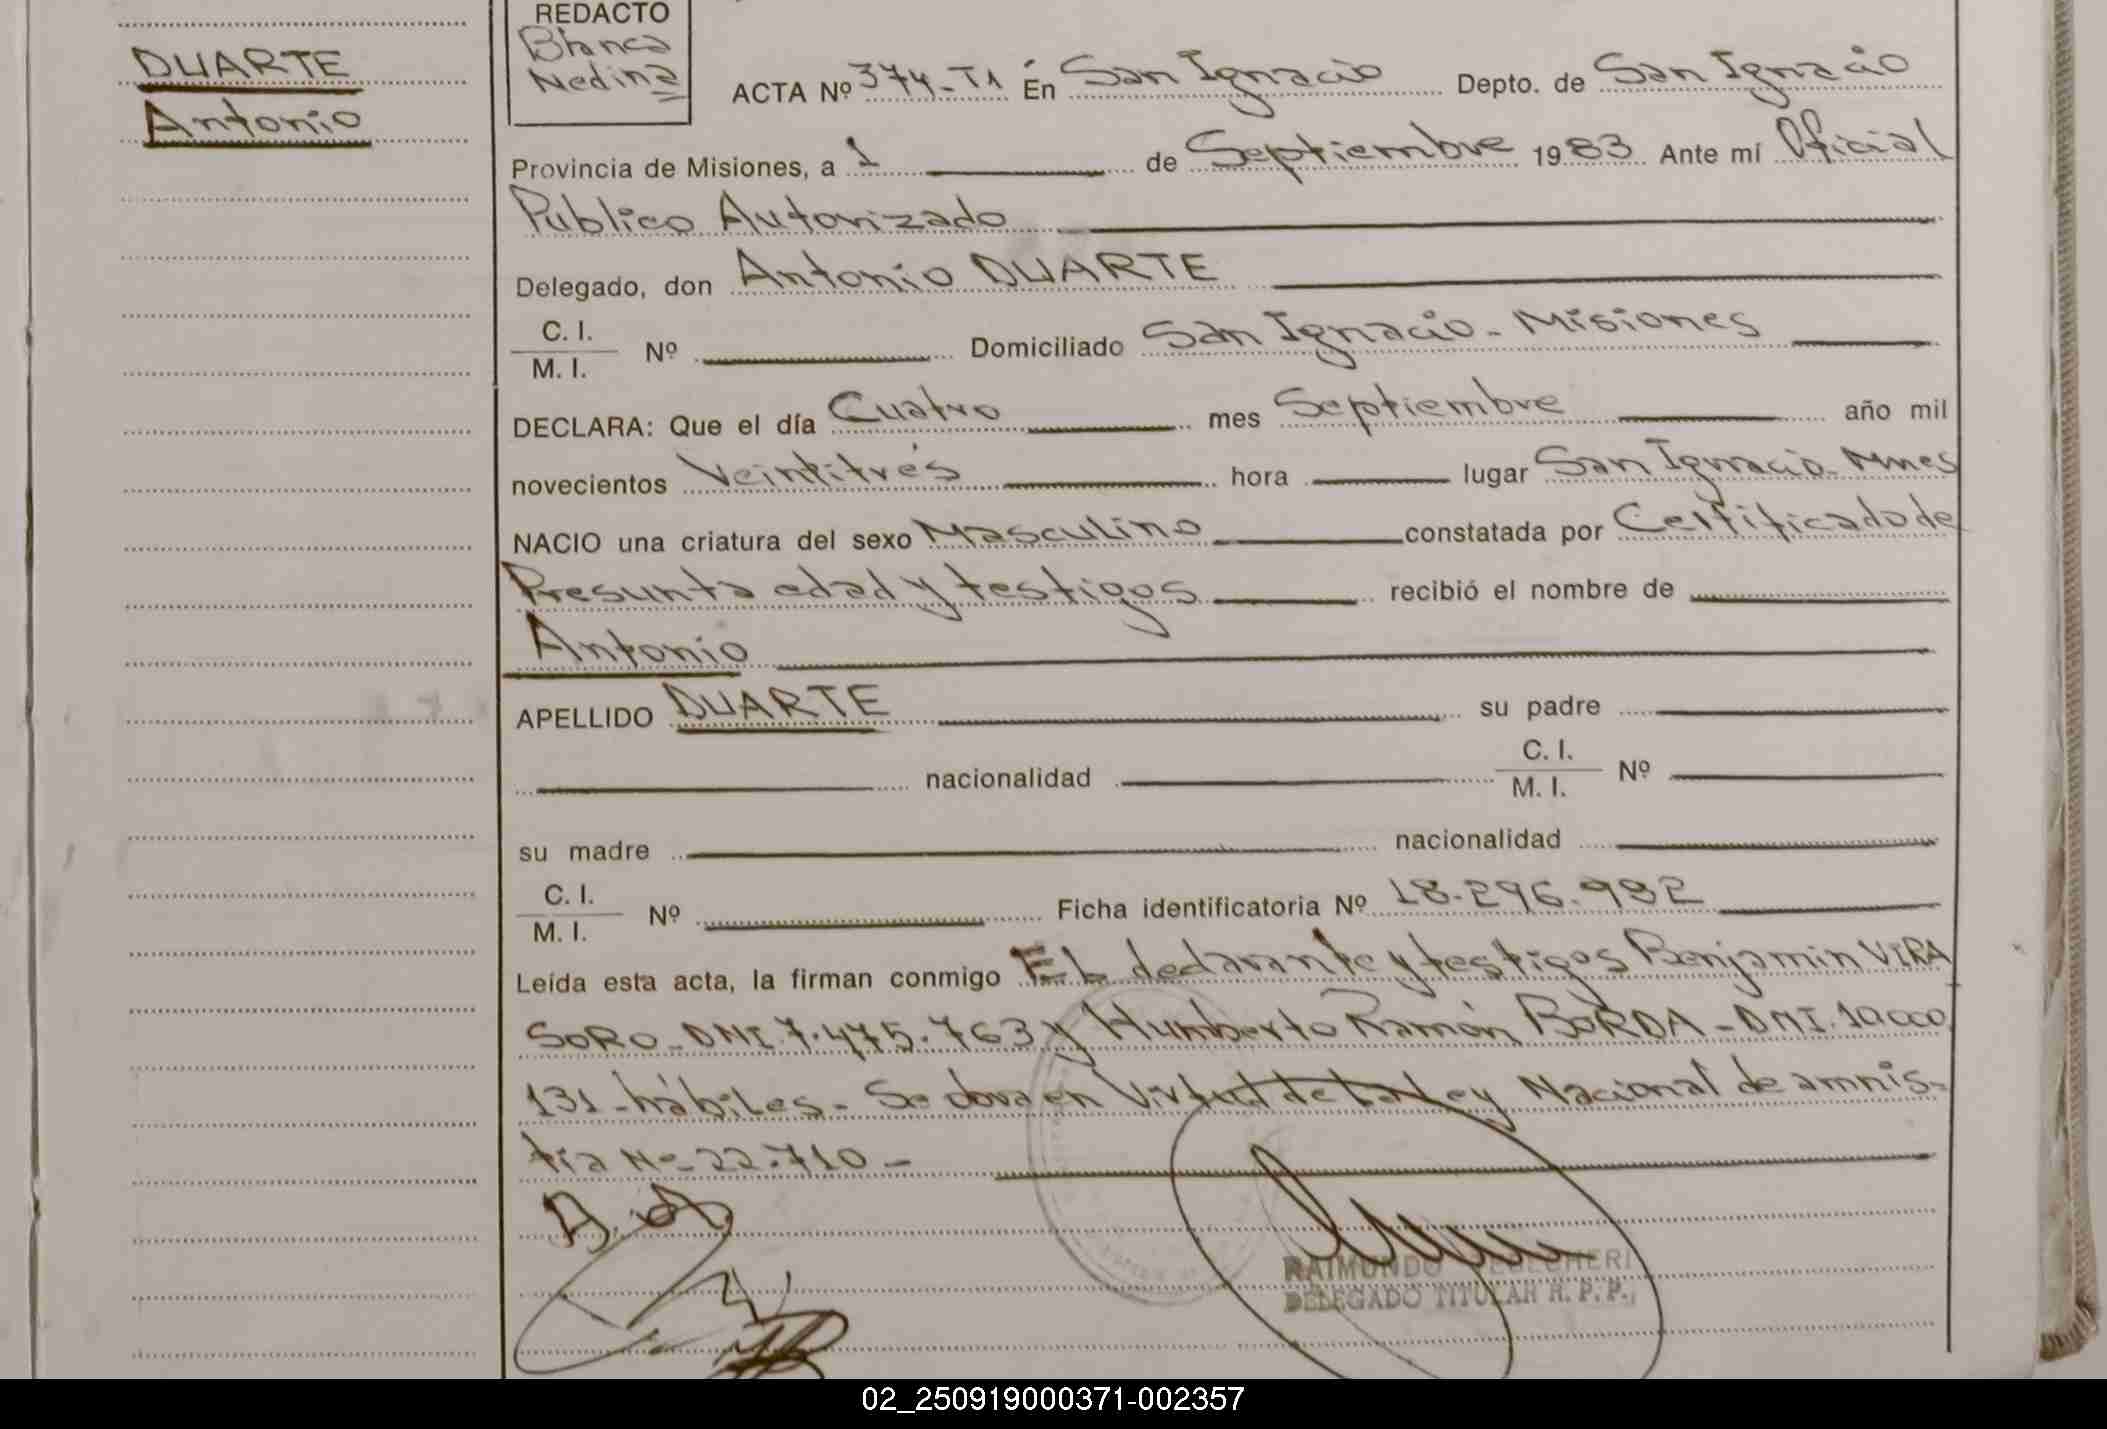 DUARTE
Antonio
REDACTO
Blanca
Medina
ACTA Nº 374-T1 En San Ignacio Depto. de San Ignacio
Provincia de Misiones, a 1 de Septiembre 1983 Ante mí Oficial
Publico Autorizado
Delegado, don Antonio DUARTE
C. I.
M. I. Nº Domiciliado San Ignacio - Misiones
DECLARA: Que el día Cuatro mes Septiembre año mil
novecientos Veintitrés hora lugar San Ignacio - Mnes
NACIO una criatura del sexo Masculino constatada por Certificado de
Presunta edad y testigos recibió el nombre de
Antonio
APELLIDO DUARTE su padre
nacionalidad C. I.
M. I. Nº
su madre nacionalidad
C. I.
M. I. Nº Ficha identificatoria Nº 18-296.982
Leída esta acta, la firman conmigo El declarante y testigos Benjamin VIRA
SORO - DNI. 7.475.763 y Humberto Ramón BORDA - DNI. 10.000
131 - hábiles - Se labra en Virtud de la Ley Nacional de amnis-
tía Nº 22.710 -
RAIMUNDO
DELEGADO TITULAR R. P. P.
02_250919000371-002357